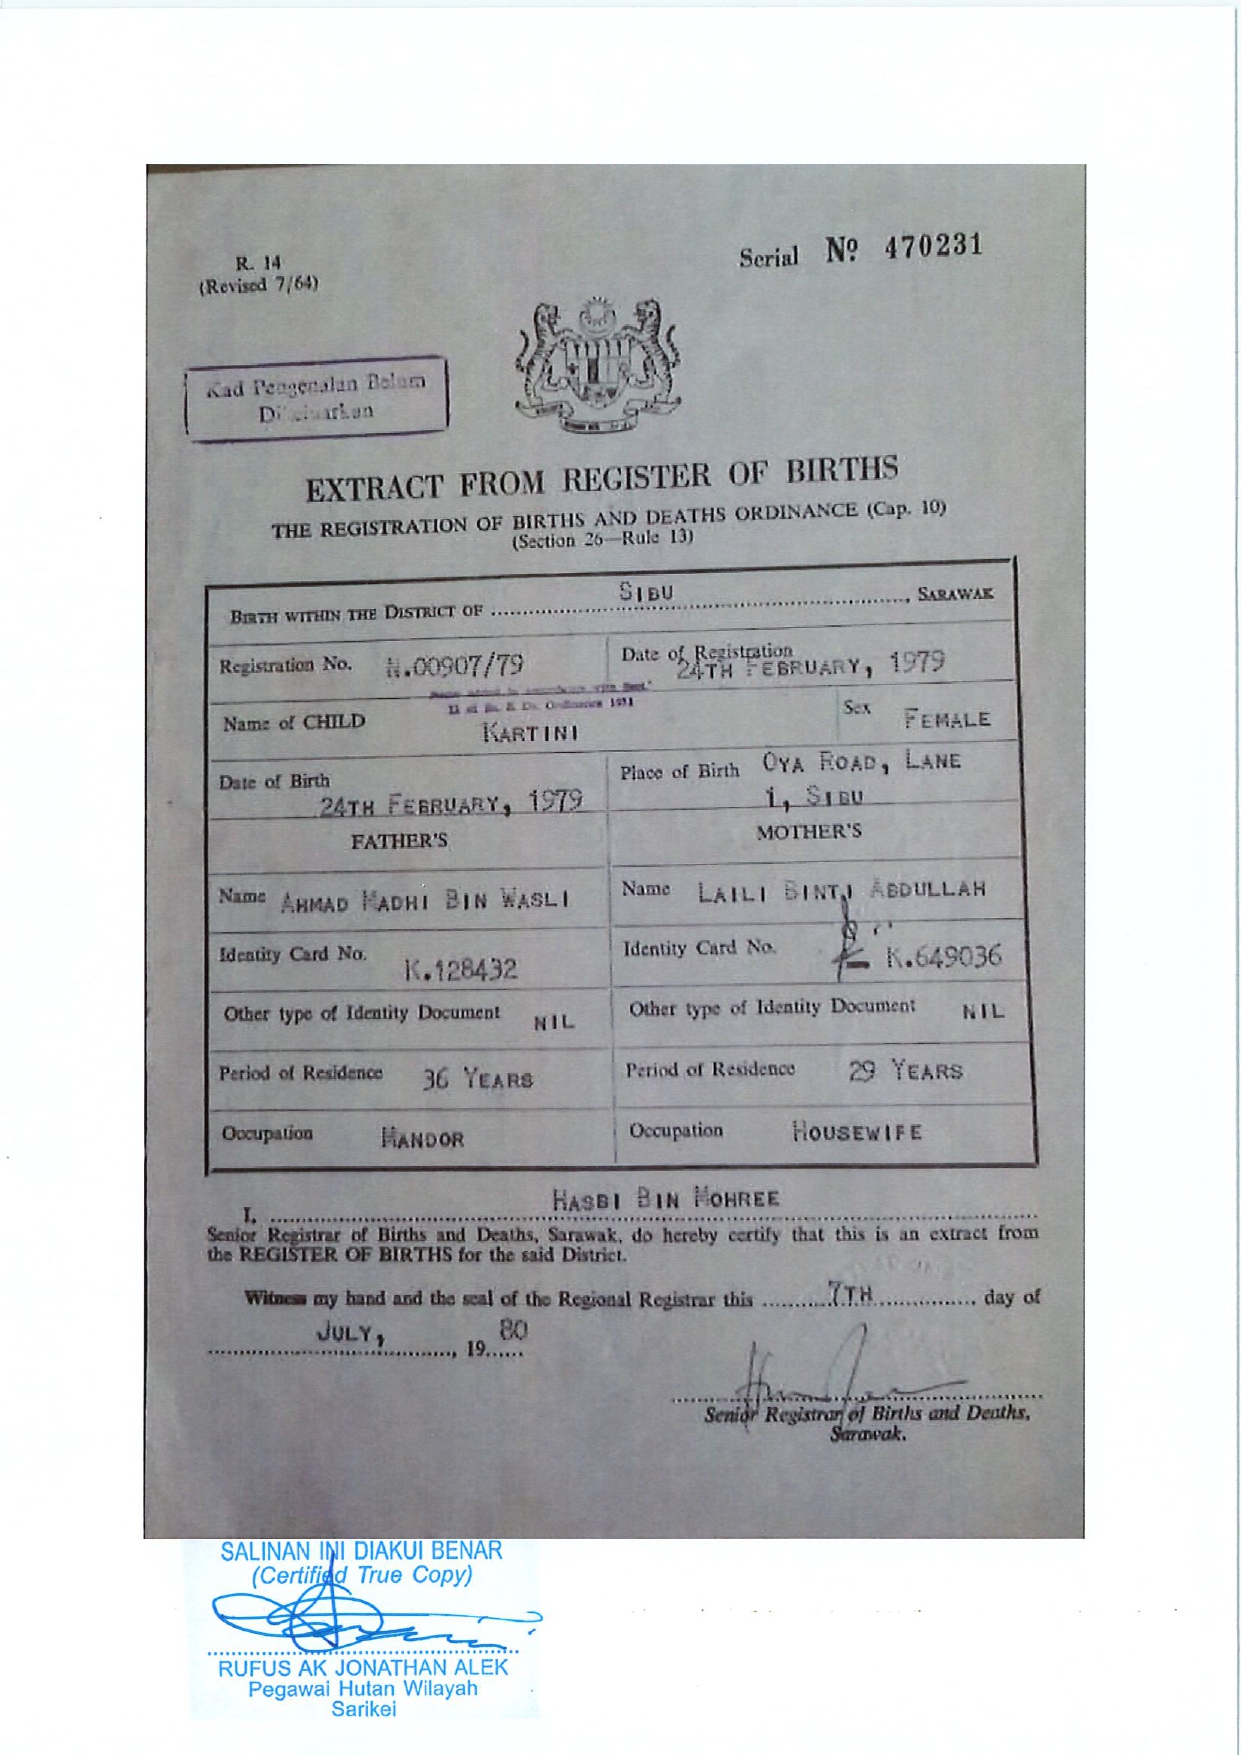 R. 14
(Revised 7/64)
Serial Nº 470231
Kad Pengenalan Belum
Dikeluarkan
EXTRACT FROM REGISTER OF BIRTHS
THE REGISTRATION OF BIRTHS AND DEATHS ORDINANCE (Cap. 10)
(Section 26—Rule 13)
BIRTH WITHIN THE DISTRICT OF SIBU, SARAWAK
Registration No. N.00907/79
Date of Registration
24TH FEBRUARY, 1979
Name added in accordance with Sect.
Ordinance 1951
Name of CHILD KARTINI
Sex FEMALE
Date of Birth
24TH FEBRUARY, 1979
Place of Birth OYA ROAD, LANE
1, SIBU
FATHER'S
MOTHER'S
Name AHMAD MADHI BIN WASLI
Name LAILI BINTI ABDULLAH
Identity Card No. K.128432
Identity Card No. K.649036
Other type of Identity Document NIL
Other type of Identity Document NIL
Period of Residence 36 YEARS
Period of Residence 29 YEARS
Occupation MANDOR
Occupation HOUSEWIFE
I, HASBI BIN MOHREE
Senior Registrar of Births and Deaths, Sarawak, do hereby certify that this is an extract from
the REGISTER OF BIRTHS for the said District.
Witness my hand and the seal of the Regional Registrar this 7TH day of
JULY, , 19 80
Senior Registrar of Births and Deaths,
Sarawak.
SALINAN INI DIAKUI BENAR
(Certified True Copy)
RUFUS AK JONATHAN ALEK
Pegawai Hutan Wilayah
Sarikei